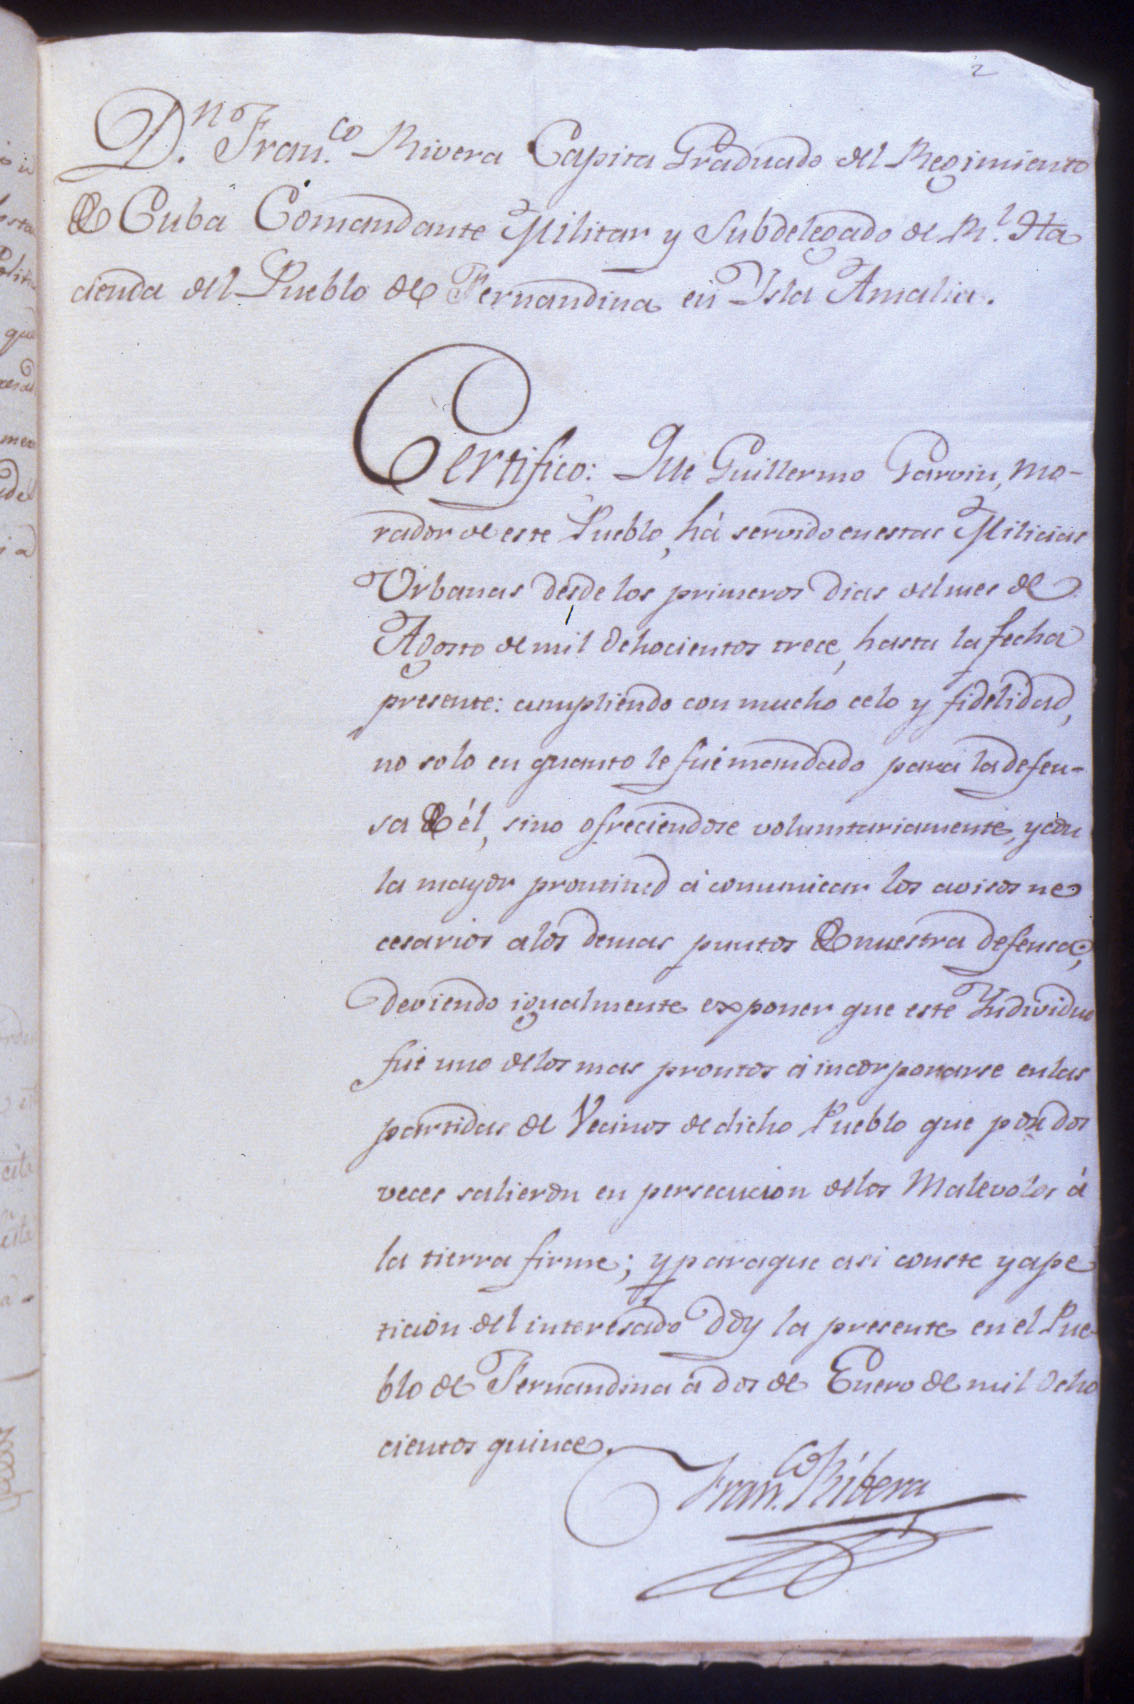 2
D.n Fran.co Rivera Capita Graduado del Regimiento
de Cuba Comandante Militar y Subdelegado de R.l Ha
cienda del Pueblo de Fernandina en Ysla Amalia.
Certifico: Que Guillermo Garvin, mo-
rador de este Pueblo, há servido en estas Milicias
Urbanas desde los primeros Dias del mes de
Agosto de mil Ochocientos trece, hasta la fecha
presente: cumpliendo con mucho celo y fidelidad,
no solo en quanto le fué mandado para la defen-
sa de él, sino ofreciendose voluntariamente, y con
la mayor prontitud á comunicar los avisos ne
cesarios a los demas puntos de nuestra defensa,
deviendo igualmente exponer que este Yndividuo
fué uno de los mas prontos á incorporarse en las
partidas de Vecinos de dicho Pueblo que por dos
veces salieron en persecucion de los Malevolos á
la tierra firme; y para que asi conste y a pe
ticion del interesado Doy la presente en el Pue-
blo de Fernandina á dos de Enero de mil Ocho
cientos quince.
Fran.co Ribera